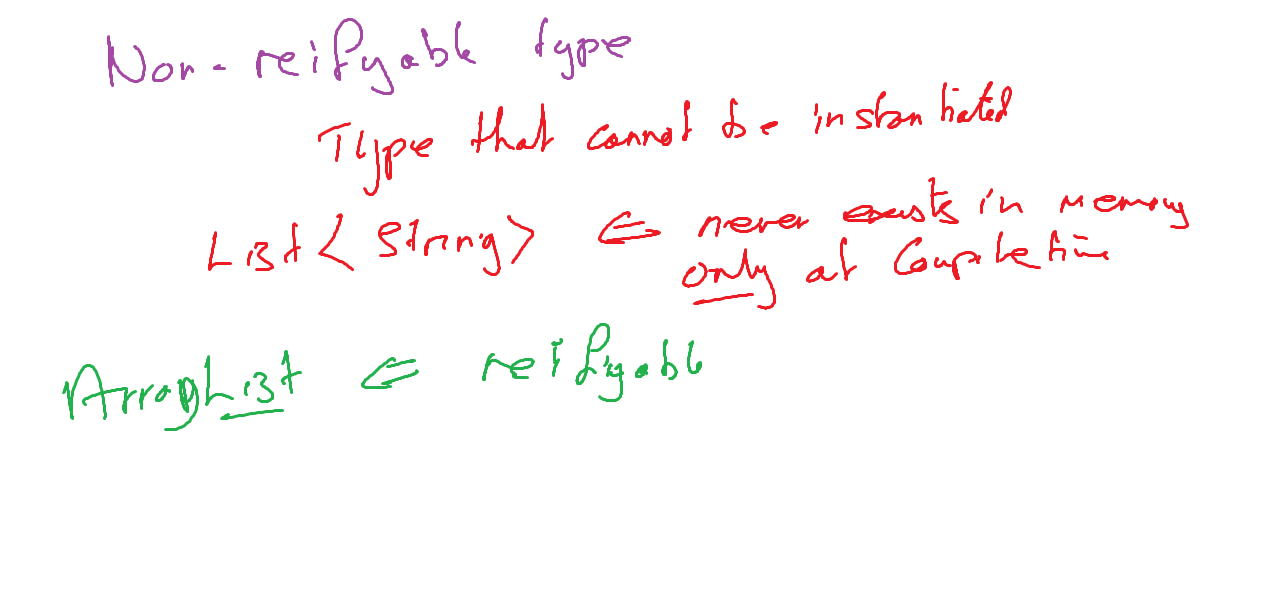 Non-reifyable type
Type that cannot be instantiated
List<String> ⇐ never exists in memory
only at Compile time
ArrayList ⇐ reifyable